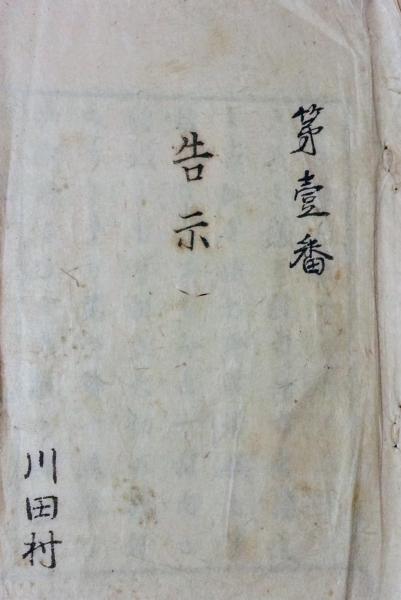 第壹番
告示
川田村